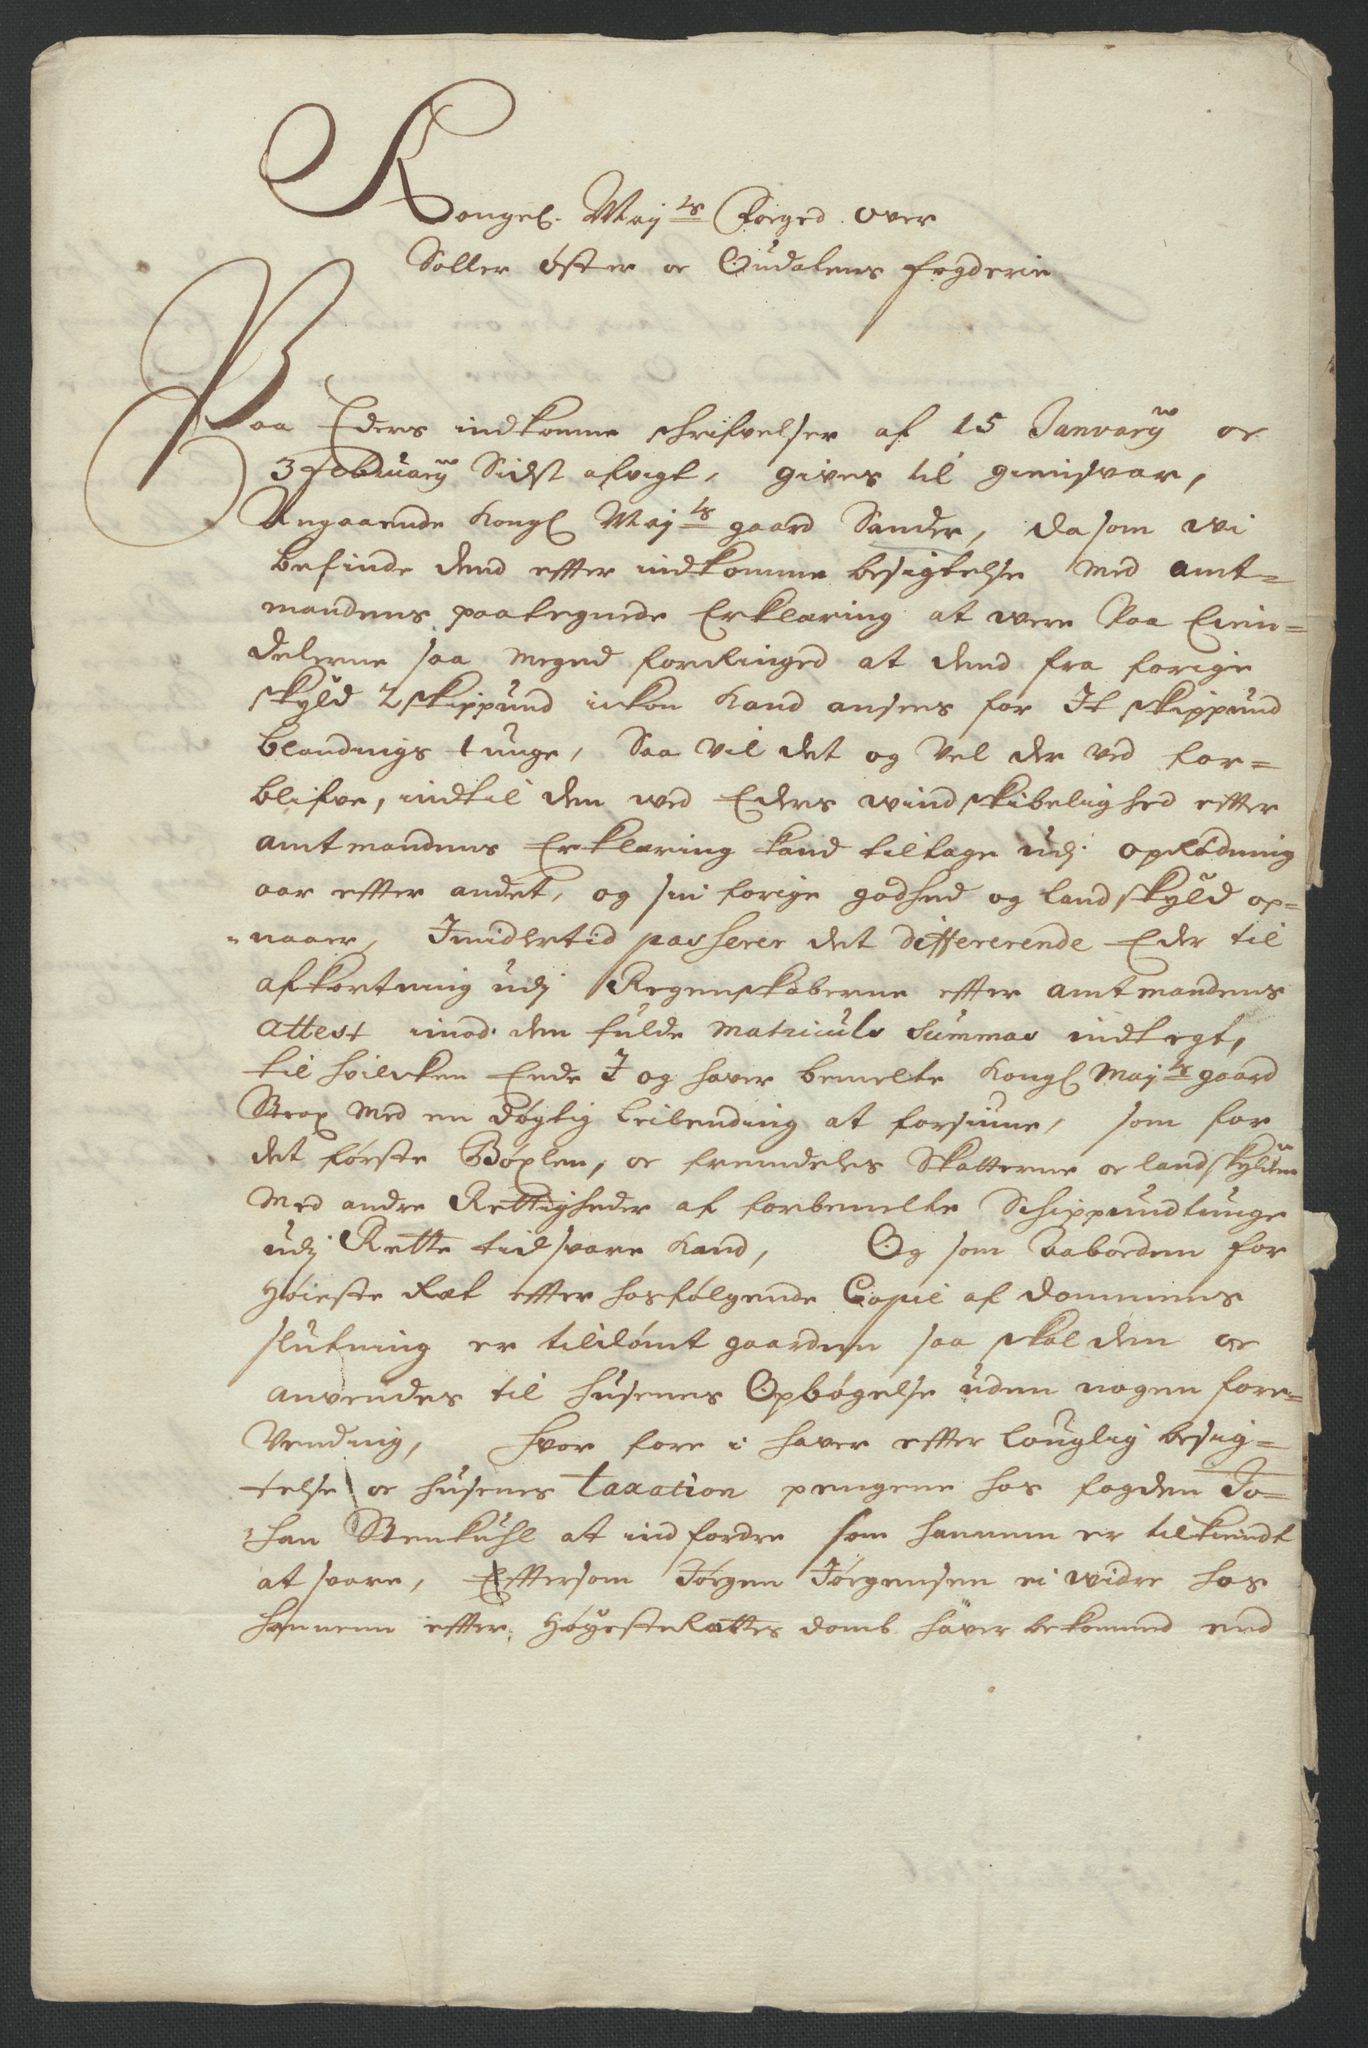 Kongel. May.ts Foeged over
Soller øster oc Oudalens fogderie
Paa Eders indkomne schrifvelser af 15 Janvarij oc
3 Februarij Sidst afvigt, gives til gienswar,
Angaaende Kongl May.ts gaard Sander, da som wi
befinde dend effter indkomne besigtelse med amt-
mandens paategnede Erklæring at were paa Eien-
delerne saa meged forringed at dend fra forige
skyld 2 skippund ickon kand ansees for It skippund
blandings tunge, Saa vil det og vel der ved for-
blifve, indtil den wed Eders windskibelighed effter
amtmandens Erklæring kand tiltage udj oprødning
aar effter andet, og sin forige godhed og landskyld op-
naaer, Imidlertid passerer det differerende Eder til
afkortning udj Regenskaberne effter amtmandens
attest imod den fulde matriculs summas indtegt,
til hvilcken Ende I og haver bemelte Kongl May.ts gaard
Strax med en døgtig leilending at forsiune, som for
det første Bøxlen, oc fremdeles Skatterne oc landskylden
med andre Rettigheder af forbemelte Schippundtunge
udj Rette tid svare kand, Og som Aaboeden for
Høieste Ræt effter hosfølgende Copie af dommens
slutning er tildømt gaarden saa skal den oc
anvendes til husenes Opbøgelse uden nogen fore-
vending, hvor fore i haver effter louglig besig-
telse oc husenes taxation pengene hos fogden Jo-
han Stenkuhl at indfordre som hannem er tilkiendt
at svare, Effttersom Jørgen Jørgensen ei widre hos
hannem effter Høyeste Rættes domb haver bekommed end